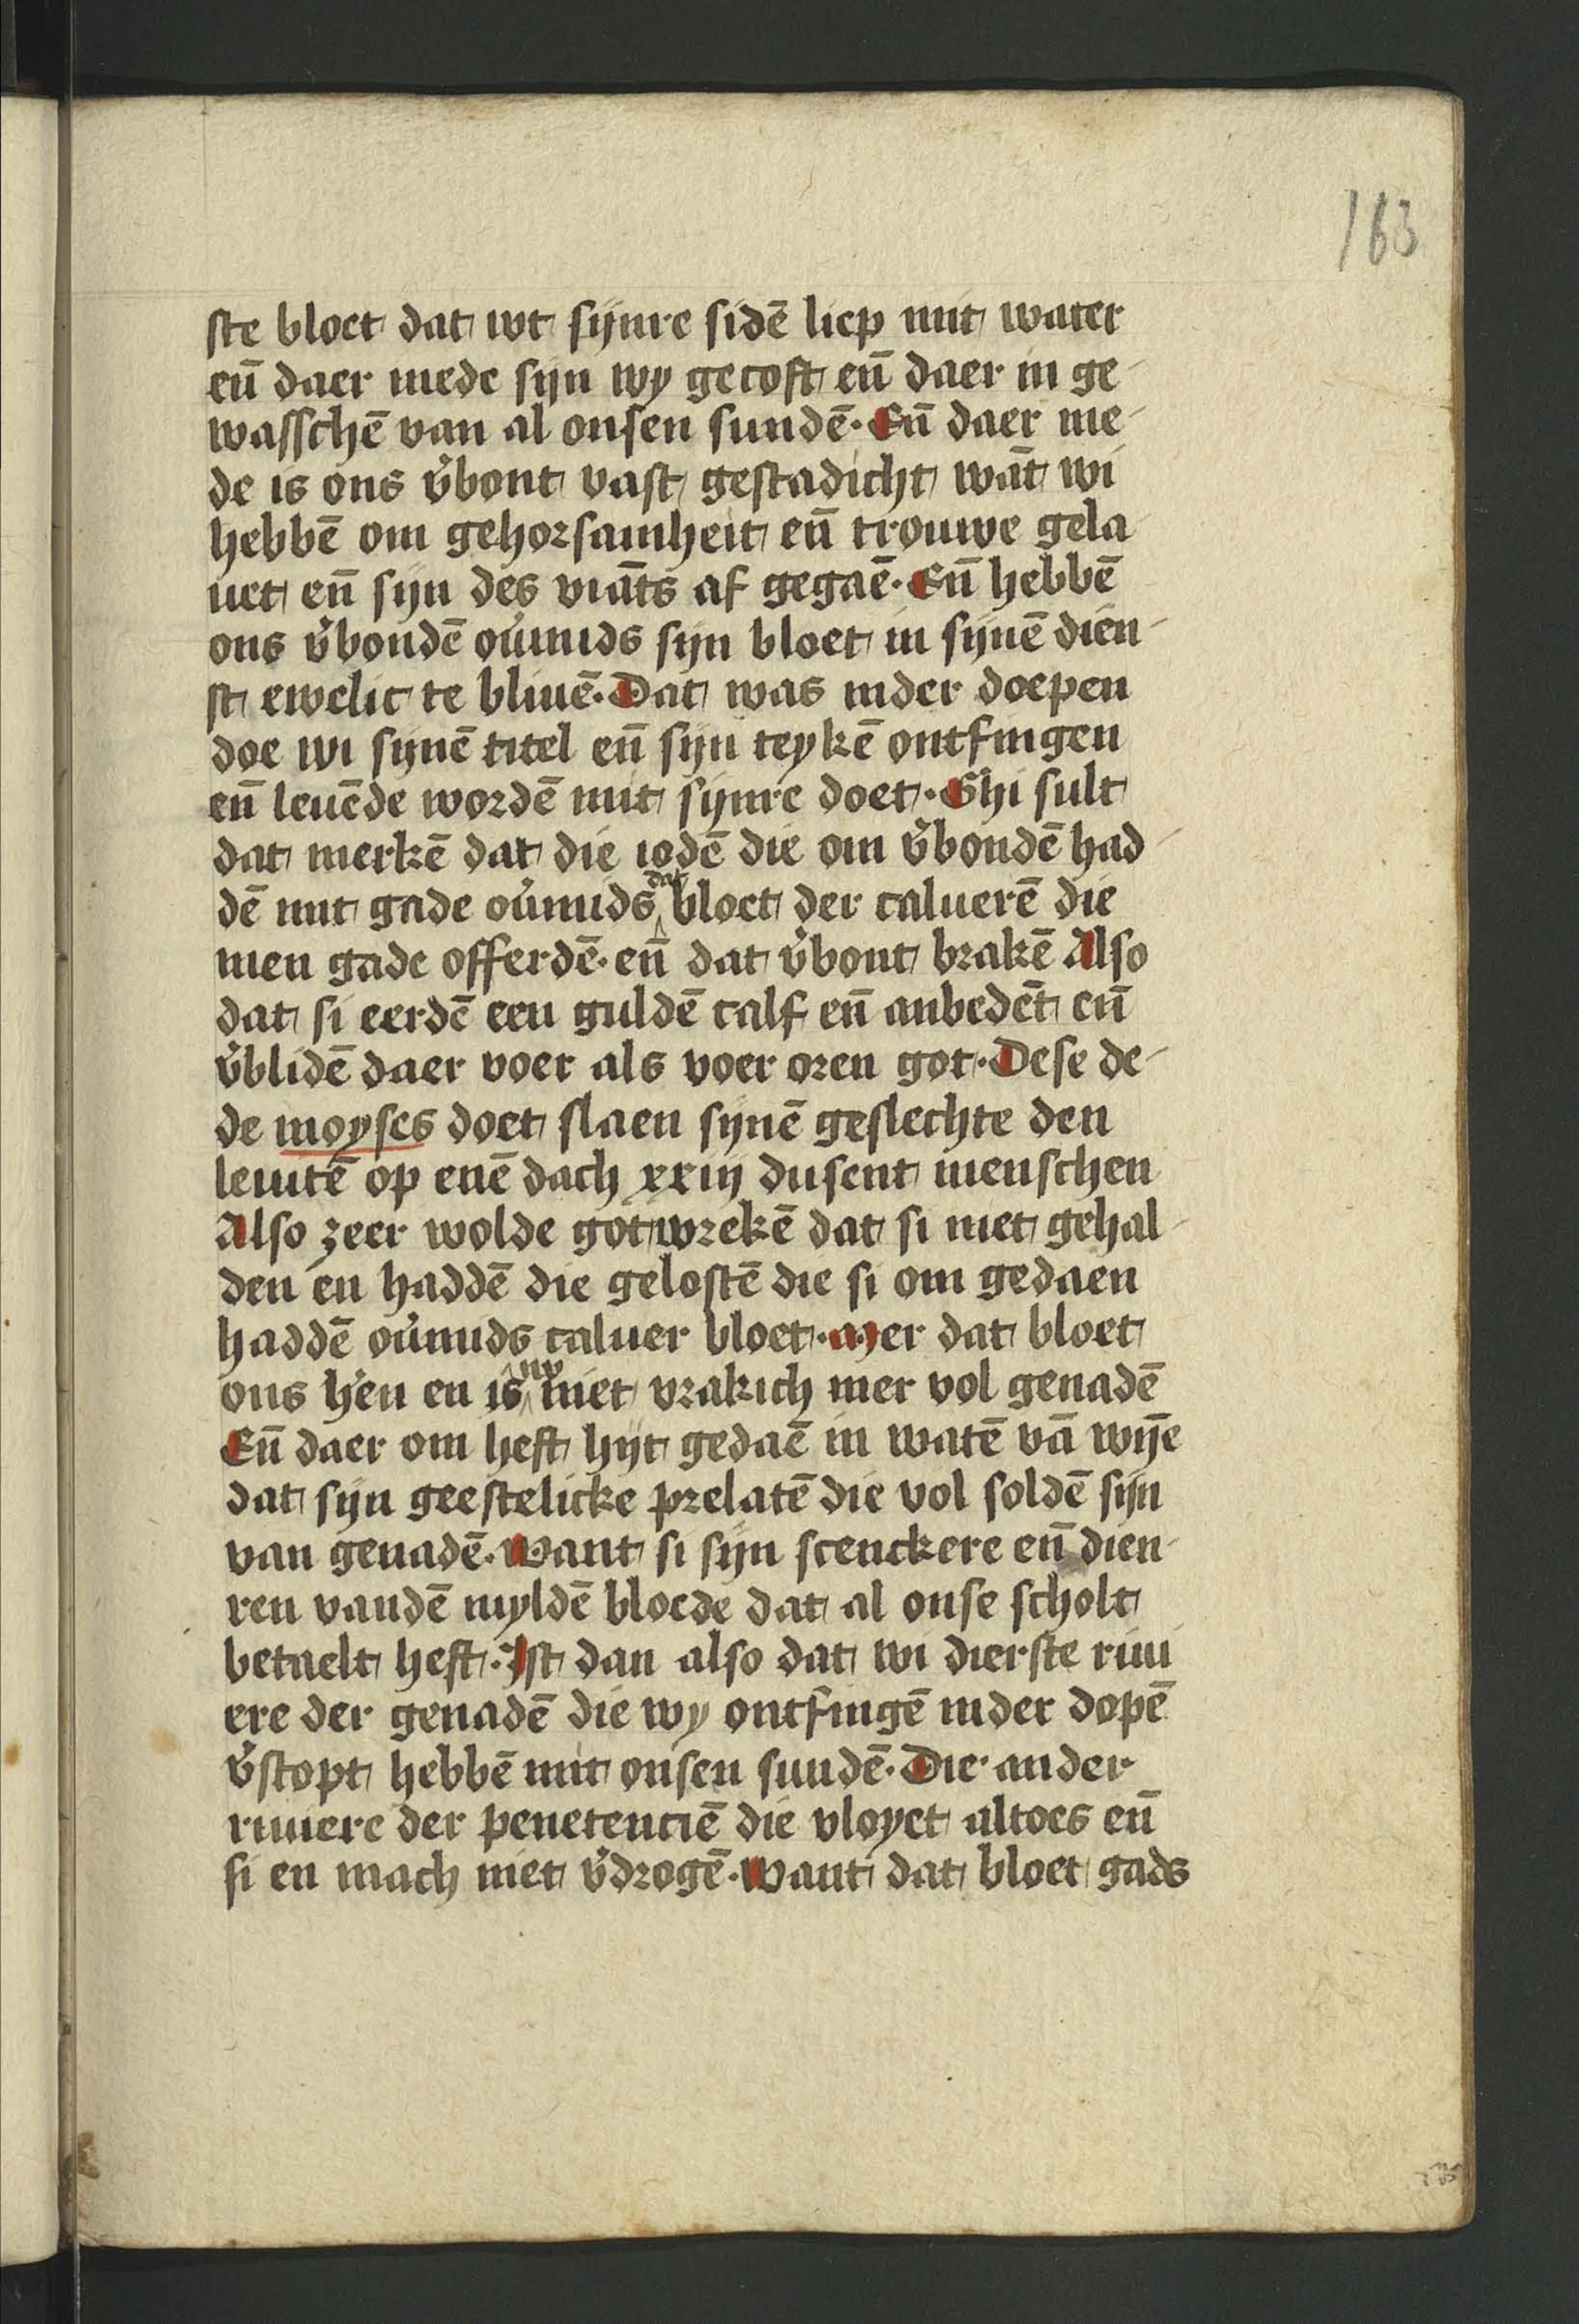 163
ste bloet dat wt sijnre sidē liep mit water
eñ daer mede sijn wy gecoft eñ daer in ge-
wasschē van al onsen sundē. Eñ daer me-
de is ons v̉bont vast gestadicht wāt wi
hebbē om gehorsamheit eñ trouwe gela-
uet eñ sijn des viāts af gegaē. Eñ hebbē
ons v̉bondē oủmids sijn bloet in sijnē dien-
st ewelic te bliuē. Dat was inder doepen
doe wi sijnē titel eñ sijn teykē ontfingen
eñ leuēde wordē mit sijnre doet. Ghi sult
dat merkē dat die iodē die om v̉bondē had-
dē mit gade oủmids dat bloet der caluerē die
men gade offerdē. eñ dat v̉bont brakē Also
dat si eerdē een guldē calf eñ anbedēt eñ
v̉blidē daer voer als voer oren got. Dese de-
de moyses doet slaen sijnē geslechte den
leuitē op enē dach xxiij dusent menschen
Also zeer wolde got wrekē dat si niet gehal-
den en haddē die gelostē die si om gedaen
haddē oủmids caluer bloet. Mer dat bloet
ons h̉en en is nv niet vrakich mer vol genadē
Eñ daer om heft hijt gedaē in watē vā wijē
dat sijn geestelicke prelatē die vol soldē sijn
van genadē. Want si sijn scenckere eñ dien-
ren vandē myldē bloede dat al onse scholt
betaelt heft. Ist dan also dat wi dierste riui
ere der genadē die wy ontfingē inder dopē
v̉stopt hebbē mit onsen sundē. Die ander
riuiere der penetenciē die vloyet altoes eñ
si en mach niet v̉drogē. Want dat bloet gads